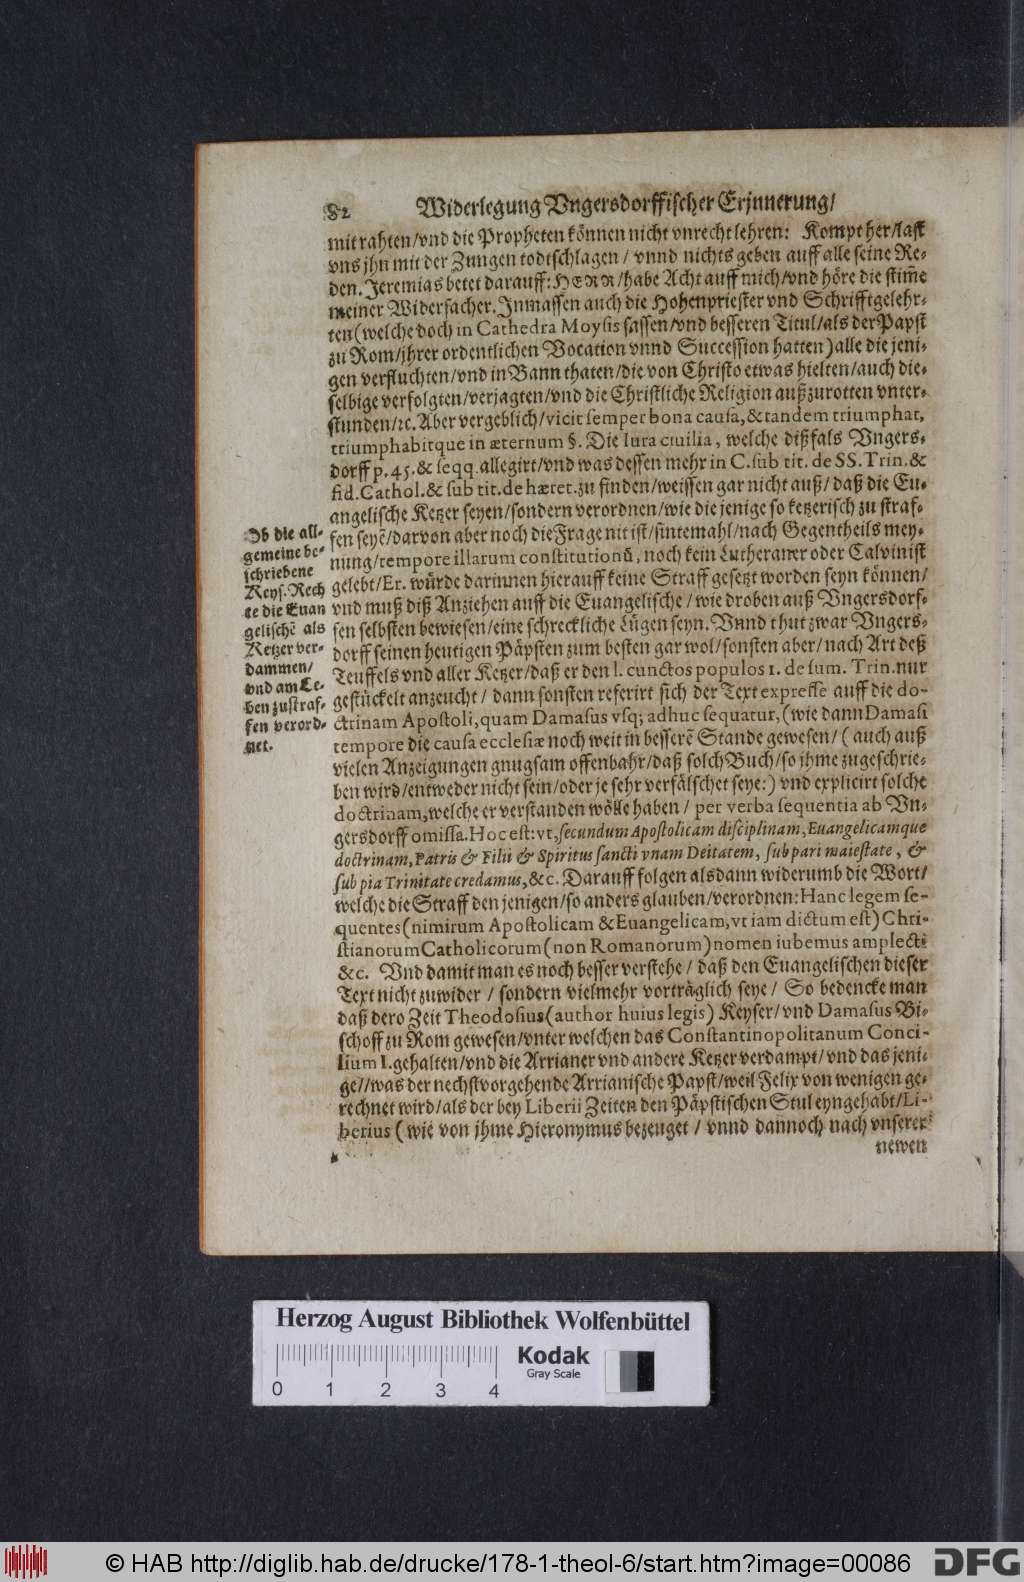 82 Widerlegung Vngersdorffischer Erjnnerung/
mit rahten/vnd die Propheten können nicht vnrecht lehren: Kompt her/last
vns jhn mit der Zungen todtschlagen / vnnd nichts geben auff alle seine Re-
den. Jeremias betet darauff: HERR/habe Acht auff mich/vnd höre die stim̃e
meiner Widersacher. Inmassen auch die Hohenpriester vnd Schrifftgelehr-
ten (welche doch in Cathedra Moysis sassen/vnd besseren Titul/als der Papst
zu Rom/jhrer ordentlichen Vocation vnnd Succession hatten) alle die jeni-
gen verfluchten/vnd in Bann thaten/die von Christo etwas hielten/auch die-
selbige verfolgten/verjagten/vnd die Christliche Religion außzurotten vnter-
stunden/ꝛc. Aber vergeblich/vicit semper bona causa, & tandem triumphat,
triumphabitque in æternum §. Die Iura ciuilia, welche dißfals Vngers-
dorff p. 45. & seqq. allegirt/vnd was dessen mehr in C. sub tit. de SS. Trin. &
fid. Cathol. & sub tit. de hæret. zu finden/weissen gar nicht auß/ daß die Eu-
angelische Ketzer seyen/sondern verordnen/wie die jenige so ketzerisch zu straf-
fen seyẽ/darvon aber noch die Frage nit ist/sintemahl/nach Gegentheils mey-
nung/tempore illarum constitutionũ, noch kein Lutheraner oder Calvinist
gelebt/Er. würde darinnen hierauff keine Straff gesetzt worden seyn können/
vnd muß diß Anziehen auff die Euangelische / wie droben auß Vngersdorf-
fen selbsten bewiesen/eine schreckliche Lügen seyn. Vnnd thut zwar Vngers-
dorff seinen heutigen Päpsten zum besten gar wol/sonsten aber/nach Art deß
Teuffels vnd aller Ketzer/daß er den l. cunctos populos 1. de sum. Trin. nur
gestückelt anzeucht / dann sonsten referirt sich der Text expresse auff die do-
ctrinam Apostoli, quam Damasus vsq; adhuc sequatur, (wie dann Damasi
tempore die causa ecclesiæ noch weit in besserẽ Stande gewesen/ ( auch auß
vielen Anzeigungen gnugsam offenbahr/daß solch Buch/so jhme zugeschrie-
ben wird/entweder nicht sein/oder je sehr verfälschet seye:) vnd explicirt solche
doctrinam, welche er verstanden wölle haben / per verba sequentia ab Vn-
gersdorff omissa. Hoc est: vt, secundum Apostolicam disciplinam, Euangelicamque
doctrinam, Patris & Filii & Spiritus sancti vnam Deitatem, sub pari maiestate, &
sub pia Trinitate credamus, &c. Darauff folgen alsdann widerumb die Wort/
welche die Straff den jenigen/so anders glauben/verordnen: Hanc legem se-
quentes (nimirum Apostolicam & Euangelicam, vt iam dictum est) Chri-
stianorum Catholicorum (non Romanorum) nomen iubemus amplecti
&c. Vnd damit man es noch besser verstehe / daß den Euangelischen dieser
Text nicht zuwider / sondern vielmehr vorträglich seye / So bedencke man
daß dero Zeit Theodosius (author huius legis) Keyser/vnd Damasus Bi-
schoff zu Rom gewesen/vnter welchen das Constantinopolitanum Conci-
lium I. gehalten/vnd die Arrianer vnd andere Ketzer verdampt/vnd das jeni-
ge//was der nechstvorgehende Arrianische Papst/weil Felix von wenigen ge-
rechnet wird/als der bey Liberii Zeiten den Päpstischen Stul eyngehabt/Li-
berius ( wie von jhme Hieronymus bezeuget / vnnd dannoch nach vnserer
newen
Ob die all-
gemeine be-
schriebene
Keys. Rech
te die Euan
gelischẽ als
Ketzer ver-
dammen/
vnd am Le-
ben zustraf-
fen verord-
net.
Herzog August Bibliothek Wolfenbüttel
0 1 2 3 4
Kodak
Gray Scale
© HAB http://diglib.hab.de/drucke/178-1-theol-6/start.htm?image=00086
DFG